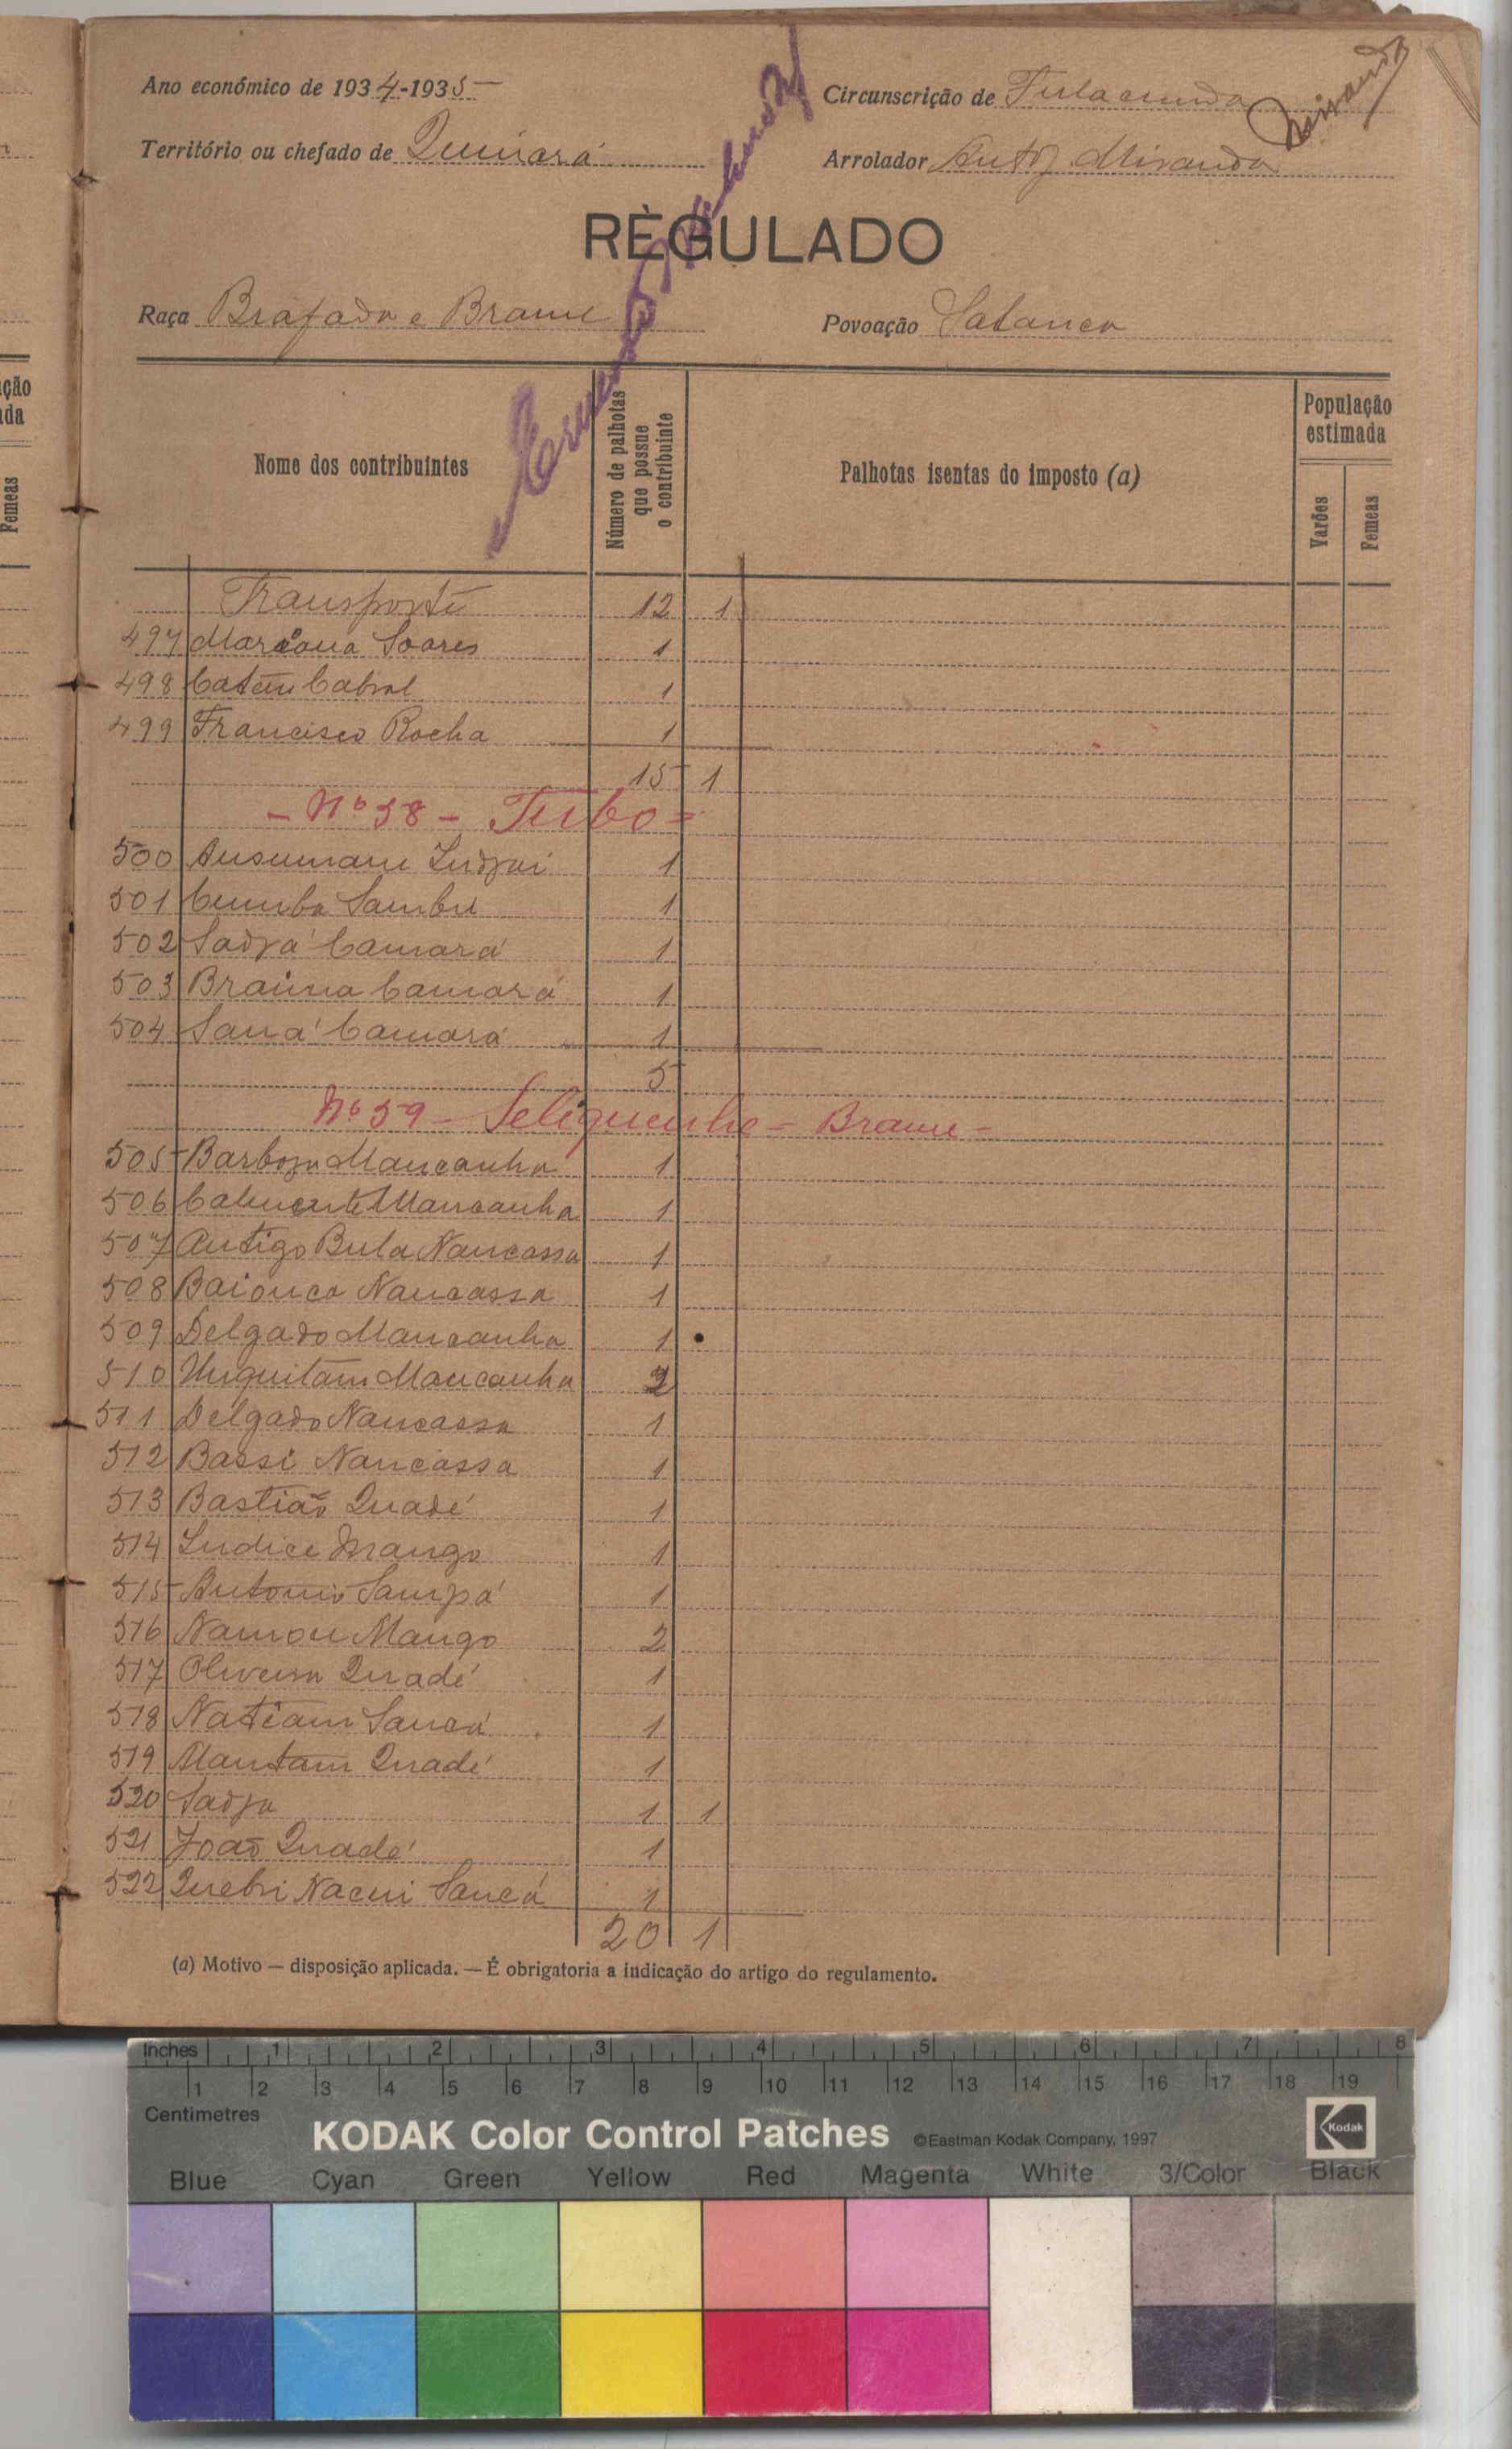 Ano económico de 1934-1935
Circunscrição de Fulacunda
Território ou chefado de Quinará
Arrolador Antº J. Miranda
Miranda
RÈGULADO
Raça Biafada e Brame
Povoação
Nome dos contribuintes
Número de palhotas que possue o contribuinte
Palhotas isentas do imposto (a)
População estimada
Varões
Femeas
Transporte 12 1
497 Mariana Soares 1
498 Cabral 1
499 Francisco Rocha 1
15 1
- Nº 58 - Tubo =
500 Ansumane Indjai 1
501 Cumba Sambu 1
502 Sadjá Camará 1
503 Braima Camará 1
504 Saná Camará 1
5
Nº 59 - - Brame -
505 Barboza Mancanha 1
506 Mancanha 1
507 Antigo Bula Nancassa 1
508 Baionca Nancassa 1
509 Delgado Mancanha 1
510 Unquitam Mancanha 2
511 Delgado Nancassa 1
512 Bassi Nancassa 1
513 Bastião Quadé 1
514 Indice Mango 1
515 Antonio Sampá 1
516 Namou Mango 2
517 Oliveira Quadé 1
518 Natiam Sancá 1
519 Mantam Quadé 1
520 Sadja 1 1
521 João Quadé 1
522 Quebri Nacui Sancá 1
20 1
(a) Motivo — disposição aplicada. — É obrigatoria a indicação do artigo do regulamento.
ção
da
Femeas
Inches 1 2 3 4 5 6 7 8
1 2 3 4 5 6 7 8 9 10 11 12 13 14 15 16 17 18 19
Centimetres
KODAK Color Control Patches ©Eastman Kodak Company, 1997 Kodak
Blue Cyan Green Yellow Red Magenta White 3/Color Black